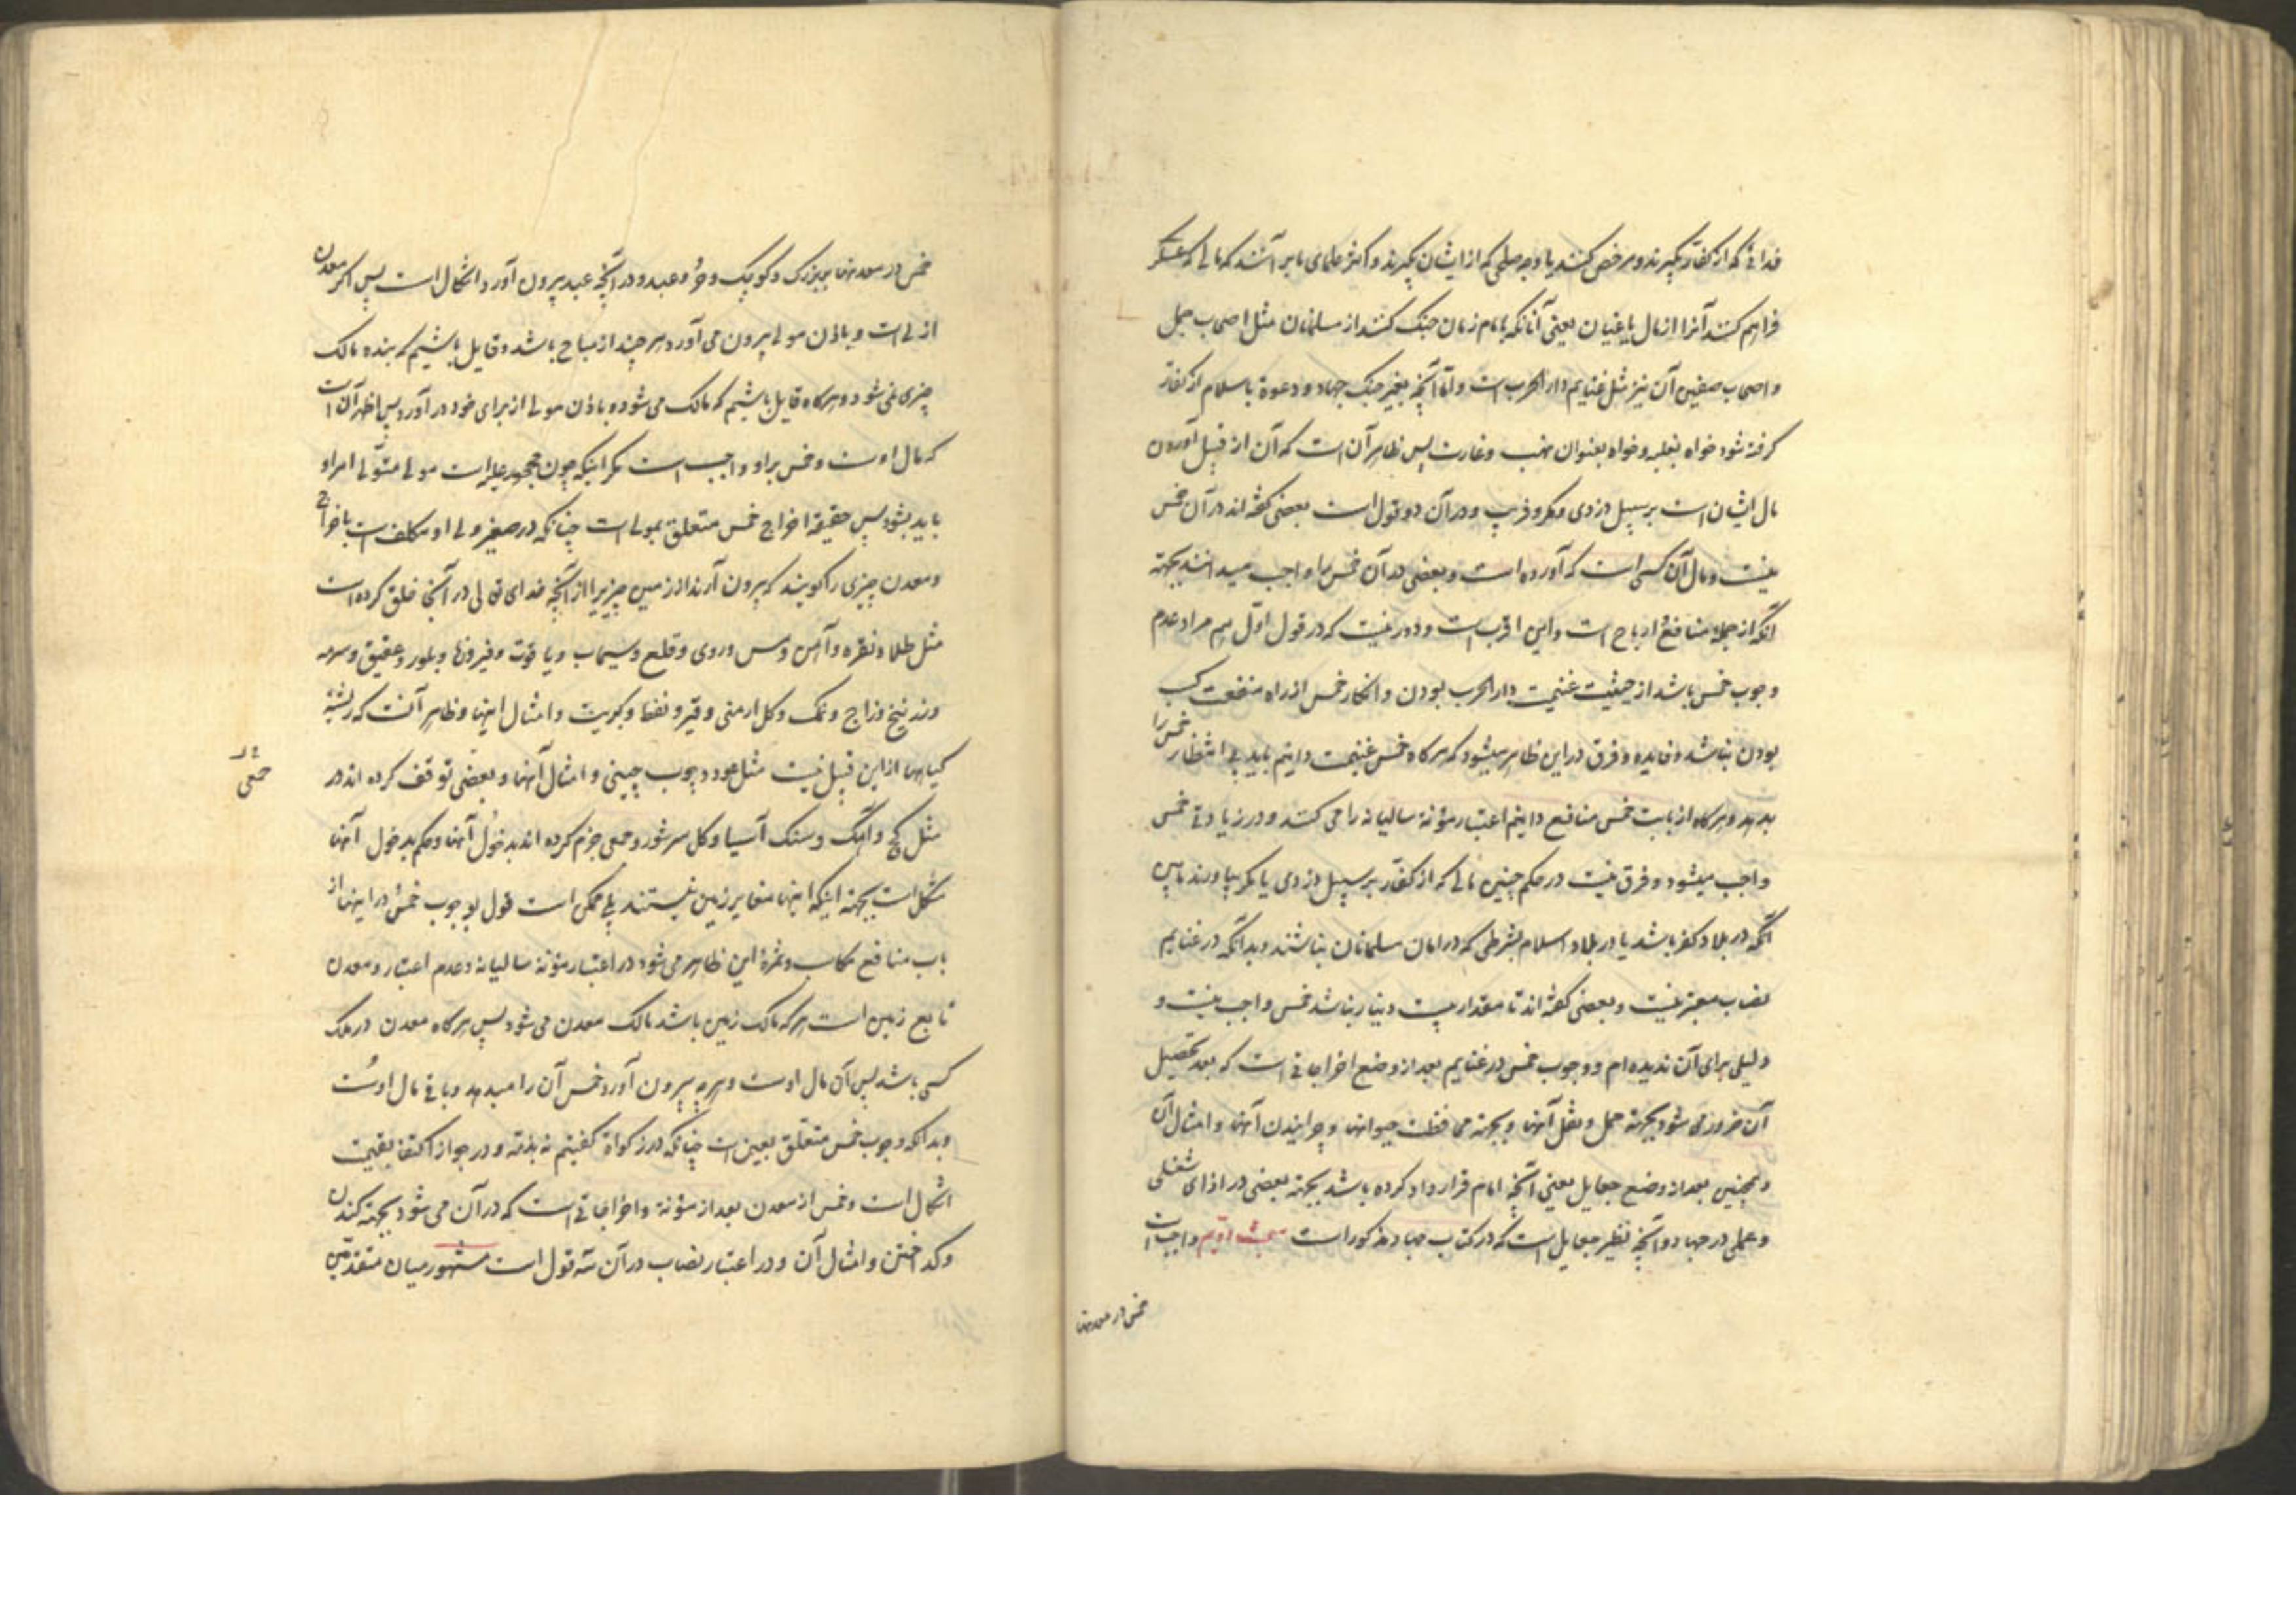 فدائی که از کفار بگیرند و مرخص کنند یا وجه صلحی که از ایشان بگیرند و اکثر علمای ما بر آنند که مالی که عسکر
فراهم کنند آنرا از مال یاغیان یعنی آنانکه با امام زمان جنگ کنند از مسلمانان مثل اصحاب جمل
و اصحاب صفین آن نیز مثل غنایم دار الحرب است و اما آنچه بغیر جنک جهاد و دعوة باسلام از کفار
گرفته شود خواه بغلبه و خواه بعنوان نهب و غارت پس ظاهر آن است که آن از قبیل آوردن
مال ایشان است بر سبیل دزدی و مکر و فریب و در آن دو قول است بعضی گفته اند در آن خمس
نیست و مال آن کسی است که آورده است و بعضی در آن خمس را واجب میدانند بجهته
آنکه از جمله منافع و ارباح است و این اقرب است و دور نیست که در قول اول هم مراد عدم
وجوب خمس باشد از حیثیت غنیمت دار الحرب بودن و انکار خمس از راه منفعت کسب
بودن نباشد و فایده و فرق در این ظاهر میشود که هرکاه خمس غنیمت دانیم باید بی انتظار خمس را
بدهد و هرکاه از بابت خمس منافع دانیم اعتبار مؤنة سالیانه را می کنند و در زیادتی خمس
واجب میشود و فرق نیست در حکم چنین مالی که از کفار بر سبیل دزدی یا مکر بیاورند مابین
آنکه در بلاد کفر باشد یا در بلاد اسلام بشرطی که در امان مسلمانان نباشند و بدانکه در غنایم
نصاب معتبر نیست و بعضی گفته اند تا مقدار بیست دینار نباشد خمس واجب نیست و
دلیلی برای آن ندیده ام و وجوب خمس در غنایم بعد از وضع اخراجاتی است که بعد تحصیل
آن ضرور می شود بجهته حمل و نقل آنها و بجهته محافظت حیوانها و چرانیدن آنها و امثال آن
و همچنین بعد از وضع جعایل یعنی آنچه امام قرارداد کرده باشد بجهته بعضی در ازای شغلی
و عملی در جهاد و آنچه نظیر جعایل است که در کتاب جهاد مذکور است مبحث دویم واجب است
خمس در معدنها
خمس در معدنها بر بزرک و کوچک و حر و عبد و در آنچه عبد بیرون آورد اشکال است پس اکر معدن
از مولی است و باذن مولی بیرون می آورد هر چند از مباح باشد و قایل باشیم که بنده مالک
چیزی نمی شود و هرکاه قایل باشیم که مالک می شود و باذن مولی از برای خود در آورد پس اظهر آن است
که مال اوست و خمس بر او واجب است مکر اینکه چون محجور علیه است مولی متولی امر او
باید بشود پس حقیقة اخراج خمس متعلق بمولی است چنانکه در صغیر ولی او مکلف است باخراج
و معدن چیزی را کویند که بیرون آرند از زمین چیزیرا از آنچه خدای تعالی در آنجا خلق کرده است
مثل طلا و نقره و آهن و مس و روی و قلع و سیماب و یاقوت و فیروزها و بلور و عقیق و سرمه
و زرنیخ و زاج و نمک و کل ارمنی و قیر و نفط و کبریت و امثال اینها و ظاهر آنست که ریشهٔ
کیاهها از این قبیل نیست مثل عود و چوب چینی و امثال آنها و بعضی توقف کرده اند در
جمعی
مثل کچ و آهک و سنک آسیا و کل سرشور و جمعی جزم کرده اند بدخول آنها و حکم بدخول آنها
مشکل است بجهته اینکه اینها مغایر زمین نیستند بلی ممکن است قول بوجوب خمس در اینها از
باب منافع مکاسب و ثمرهٔ این ظاهر می شود در اعتبار مؤنة سالیانه و عدم اعتبار و معدن
تابع زمین است هر که مالک زمین باشد مالک معدن می شود پس هرکاه معدن در ملک
کسی باشد پس آن مال اوست و هر چه بیرون آورد خمس آن را میدهد و باقی مال اوست
و بدانکه وجوب خمس متعلق بعین است چنانکه در زکواة کفتیم نه بذمه و در جواز اکتفا بقیمت
اشکال است و خمس از معدن بعد از مؤنة و اخراجاتی است که در آن می شود بجهته کندن
و کداختن و امثال آن و در اعتبار نصاب در آن سه قول است مشهور میان متقدمین